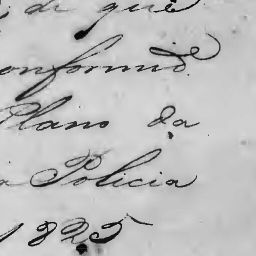 de que
onformid.e
Plano da
a Policia
1825